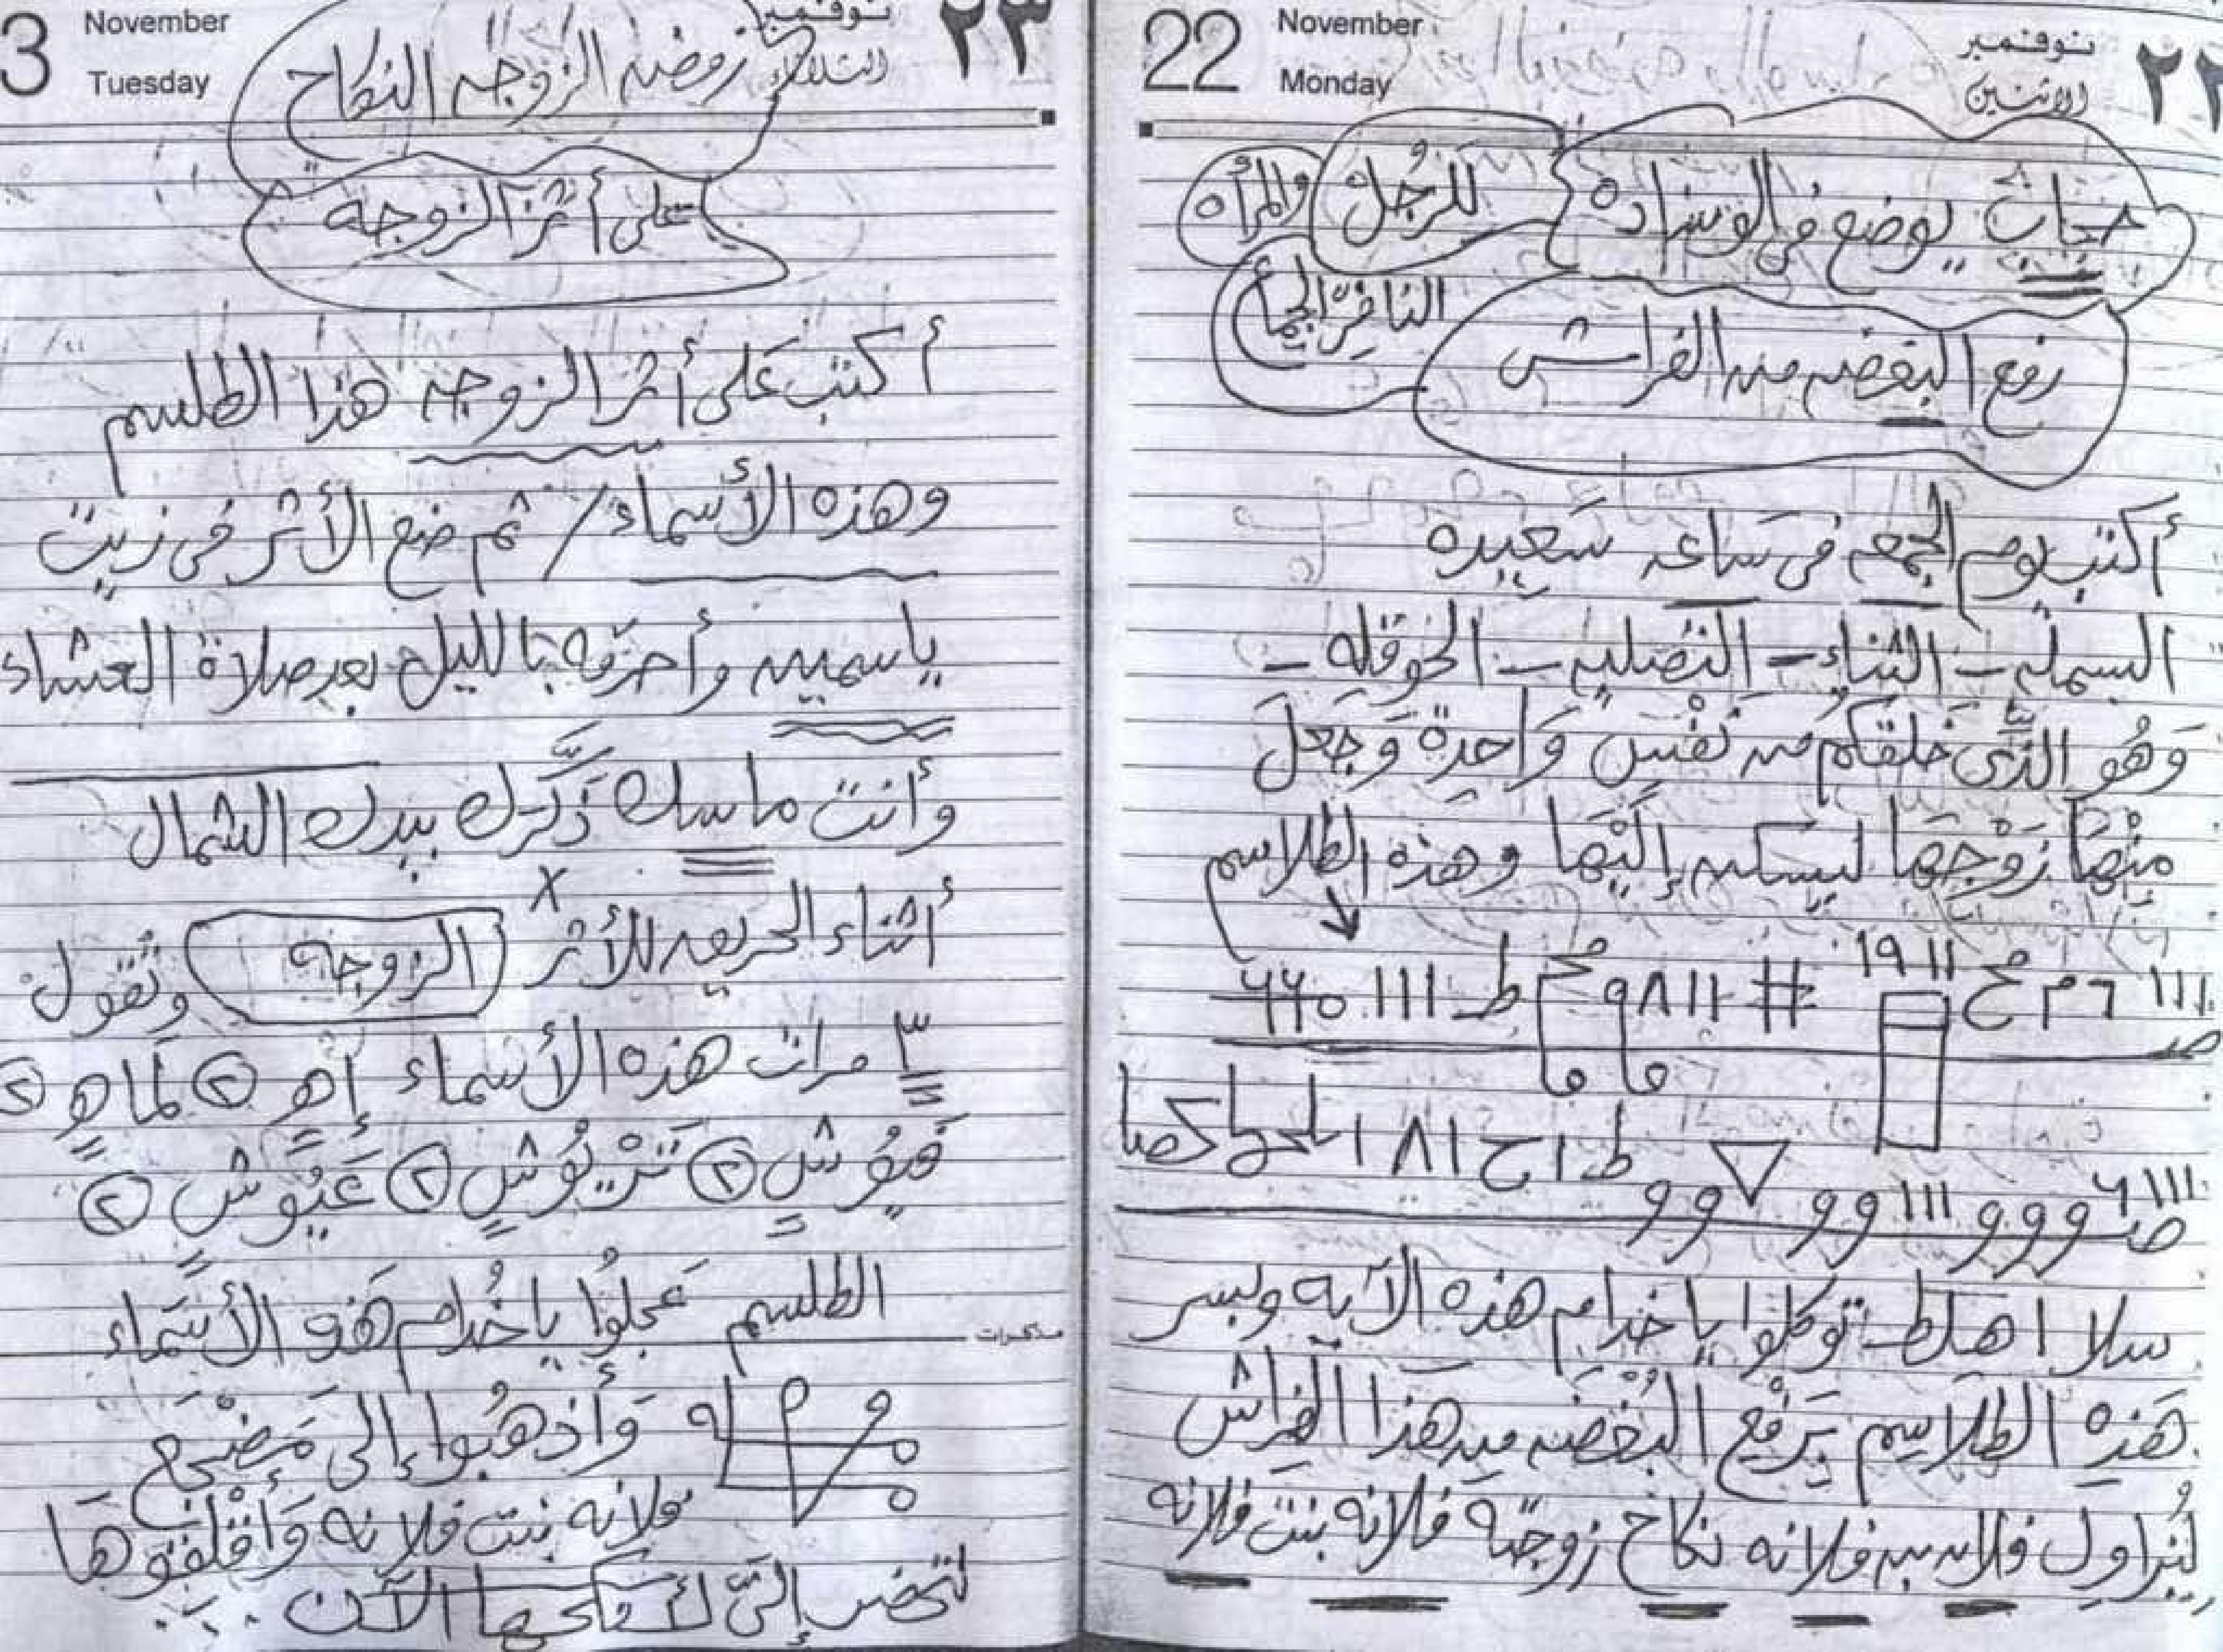 22 November نوفمبر ٢٢
Monday الاثنين
حجاب يوضع في الوسادة للرجُل والمرأه
النافرة الجماع
رفع البغضه من الفراش
أكتب يوم الجمعه في ساعه سَعيده
البسمله - الثناء - التصليه - الحوقله -
وَهُو الذَّى خلقكُم من نَفْسٍ وَاحِدةٍ وَجَعَلَ
مِنْهَا زَوْجهَا ليسكن إلَيْهَا وهذه الطلاسم
١٩١١
# ٨١١ ط ١١١
ط ١ ح ١ ٨١
١١١
سلا اهلط توكلوا ياخدام هذه الآيه وبسر
هَذِهِ الطلاسِم بِرَفْعِ البُغضه من هَذا الفِراش
لِيُزاول فلان بن فلانه نكاح زوجتة فلانه بنت فلانه
3 November نوفمبر ٢٣
Tuesday الثلاثاء
رفض الزوجه النكاح
على أثر الزوجة
أكتب عَلى أثر الزوجه هذا الطلسم
وهذه الأسماء / ثم ضع الأثر في زيت
ياسمين وأحرقه بالليل بعد صلاة العشاء
وأنت ماسك ذَكَّرك بيدك الشمال
أثناء الحريق للأثر x الزوجة وتقول
٣ مرات هذه الأسماء إهٍ ٢ لَماهٍ ٢
فَيُوُشٍ ٢ تَرْيُوُشٍ ٢ عَيُوشٍ ٢
الطلسم عَجلوُا ياخُدام هَذه الأسَماء
مذكرات
وَأذهبُوا إلى مَضْجَع
فلانه بنت فلانه وَأقْلقوهَا
لتحضر إلىَّ لأنكحها الآن